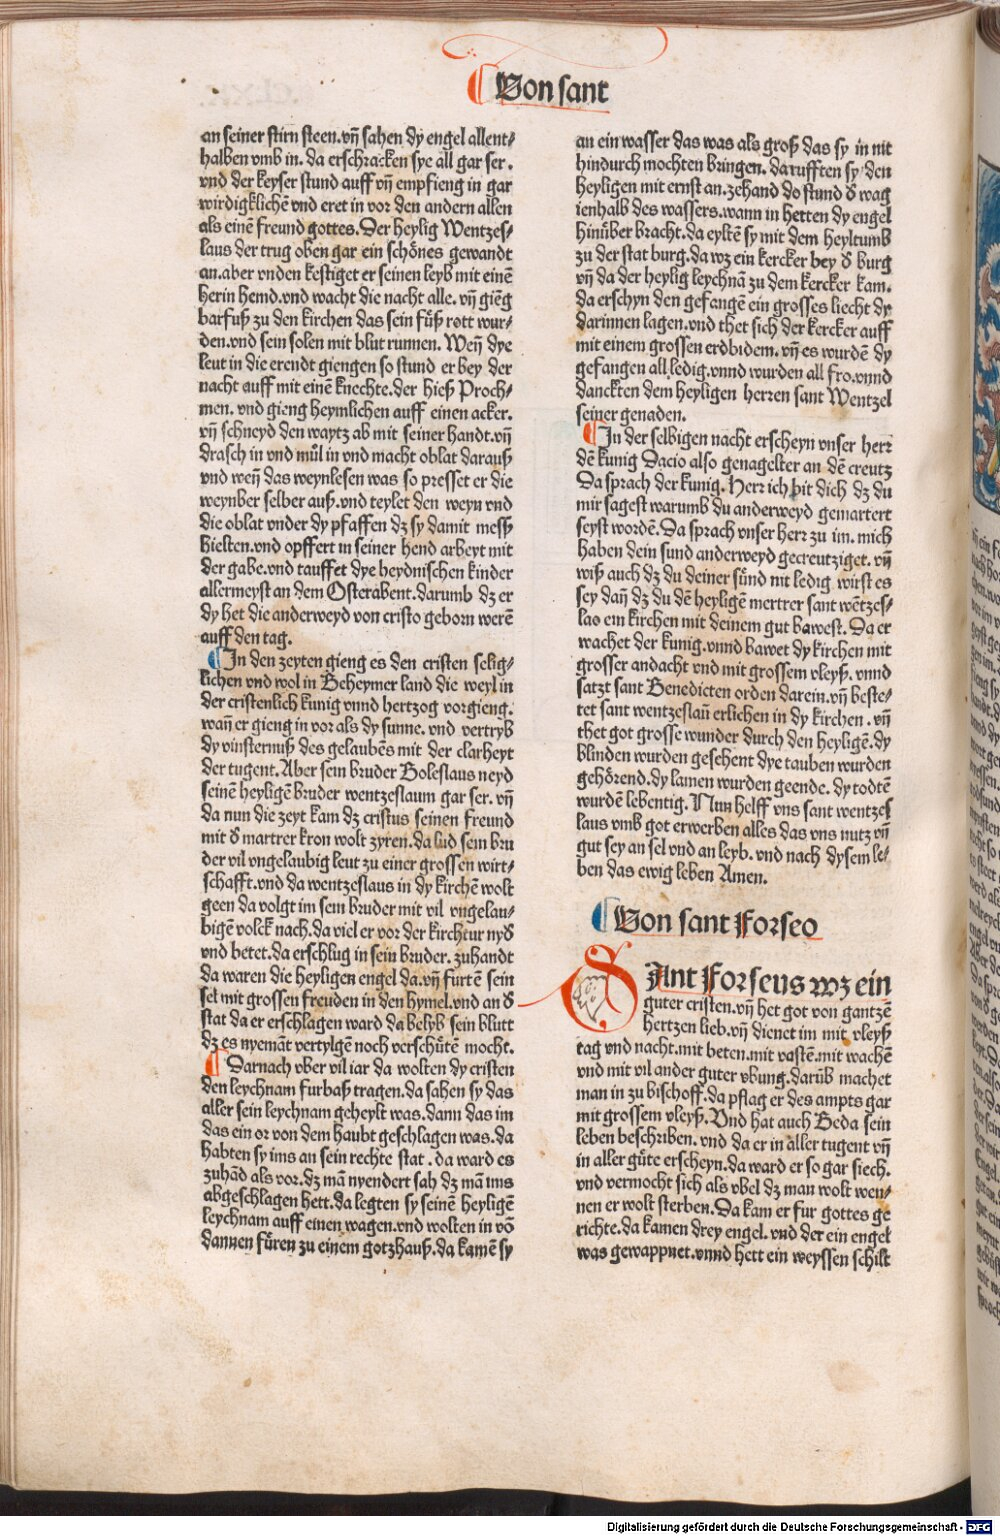 Von sant
an seiner stirn steen.vñ sahen dy engel allent⸗
halben vmb in. da erschracken sye all gar ser.
vnd der keyser stund auff vñ empfieng in gar
wirdigklichē vnd eret in vor den andern allen
als einē freund gottes. Der heylig Wentzes⸗
laus der trug oben gar ein schönes gewandt
an.aber vnden kestiget er seinen leyb mit einē
herin hemd.vnd wacht die nacht alle. vñ giēg
barfuß zu den kirchen das sein füß rott wur⸗
den.vnd sein solen mit blut runnen. Weñ dye
leut in die erendt giengen so stund er bey der
nacht auff mit einē knechte.der hieß Proch⸗
men. vnd gieng heymlichen auff einen acker.
vñ schneyd den waytz ab mit seiner handt.vñ
drasch in vnd můl in vnd macht oblat darauß
vnd weñ das weynlesen was so presset er die
weynber selber auß.vnd teylet den weyn vnd
die oblat vnder dy pfaffen dz sy damit mess
hielten.vnd opffert in seiner hend arbeyt mit
der gabe.vnd tauffet dye heydnischen kinder
allermeyst an dem Osterabent.darumb dz er
dy het die anderweyd von cristo geborn werē
auff den tag.
In den zeyten gieng es den cristen selig⸗
lichen vnd wol in Beheymer land die weyl in
der cristenlich kunig vnnd hertzog vorgieng.
wañ er gieng in vor als dy sunne. vnd vertryb
dy vinsternuß des gelaubēs mit der clarheyt
der tugent. Aber sein bruder Boleslaus neyd
seinē heyligē bruder wentzeslaum gar ser. vñ
da nun die zeyt kam dz cristus seinen freund
mit d̄ martrer kron wolt zyren.da lud sein bru
der vil vngelaubig leut zu einer grossen wirt⸗
schafft.vnd da wentzeslaus in dy kirchē wolt
geen da volgt im sein bruder mit vil vngelau⸗
bigē volck nach.da viel er vor der kirchtur nyd̄
vnd betet.da erschlug in sein bruder. zuhandt
da waren die heyligen engel da.vñ furtē sein
sel mit grossen freuden in den hymel.vnd an d̄
stat da er erschlagen ward da belyb sein blutt
dz es nyemāt vertylgē noch verschütē mocht.
Darnach vber vil iar da wolten dy cristen
den leychnam furbaß tragen.da sahen sy das
aller sein leychnam geheylt was. dann das im
das ein or von dem haubt geschlagen was.da
habten sy ims an sein rechte stat. da ward es
zuhād als vor.dz mā nyendert sah dz mā ims
abgeschlagen hett.da legten sy seinē heyligē
leychnam auff einen wagen.vnd wolten in vō
dannen füren zu einem gotzhauß.da kamē sy
an ein wasser das was als groß das sy in nit
hindurch mochten bringen. da rufften sy den
heyligen mit ernst an.zehand do stund d̄ wag
ienhalb des wassers.wann in hetten dy engel
hinüber bracht.da eyltē sy mit dem heyltumb
zu der stat burg.da wz ein kercker bey d̄ burg
vñ da der heylig leychnā zu dem kercker kam.
da erschyn den gefangē ein grosses liecht dy
darinnen lagen.vnd thet sich der kercker auff
mit einem grossen erdbidem. vñ es wurdē dy
gefangen all ledig.vnnd wurden all fro.vnnd
danckten dem heyligen herren sant Wentzel
seiner genaden.
In der selbigen nacht erscheyn vnser herr
dē kunig Dacio also genagelter an dē creutz
Da sprach der kunig. Herr ich bit dich dz du
mir sagest warumb du anderweyd gemartert
seyst wordē. Da sprach vnser herr zu im. mich
haben dein sund anderweyd gecreutziget. vñ
wiß auch dz du deiner sünd nit ledig wirst es
sey dañ dz du dē heyligē mertrer sant wētzes⸗
lao ein kirchen mit deinem gut bawest. Da er
wachet der kunig.vnnd bawet dy kirchen mit
grosser andacht vnd mit grossem vleyß. vnnd
satzt sant Benedicten orden darein.vñ beste⸗
tet sant wentzeslaū erlichen in dy kirchen. vñ
thet got grosse wunder durch den heyligē.dy
blinden wurden gesehent dye tauben wurden
gehörend.dy lamen wurden geende. dy todtē
wurdē lebentig. Nun helff vns sant wentzes
laus vmb got erwerben alles das vns nutz vñ
gut sey an sel vnd an leyb. vnd nach dysem le⸗
ben das ewig leben Amen.
Von sant Forseo
SAnt Forseus wz ein
guter cristen.vñ het got von gantzē
hertzen lieb.vñ dienet im mit vleyß
tag vnd nacht.mit beten.mit vastē.mit wachē
vnd mit vil ander guter vbung.darūb machet
man in zu bischoff.da pflag er des ampts gar
mit grossem vleyß. Vnd hat auch Beda sein
leben beschriben. vnd da er in aller tugent vñ
in aller güte erscheyn.da ward er so gar siech.
vnd vermocht sich als vbel dz man wolt wen⸗
nen er wolt sterben. Da kam er fur gottes ge
richte.da kamen drey engel. vnd der ein engel
was gewappnet.vnnd hett ein weyssen schilt
Digitalisierung gefördert durch die Deutsche Forschungsgemeinschaft - DFG